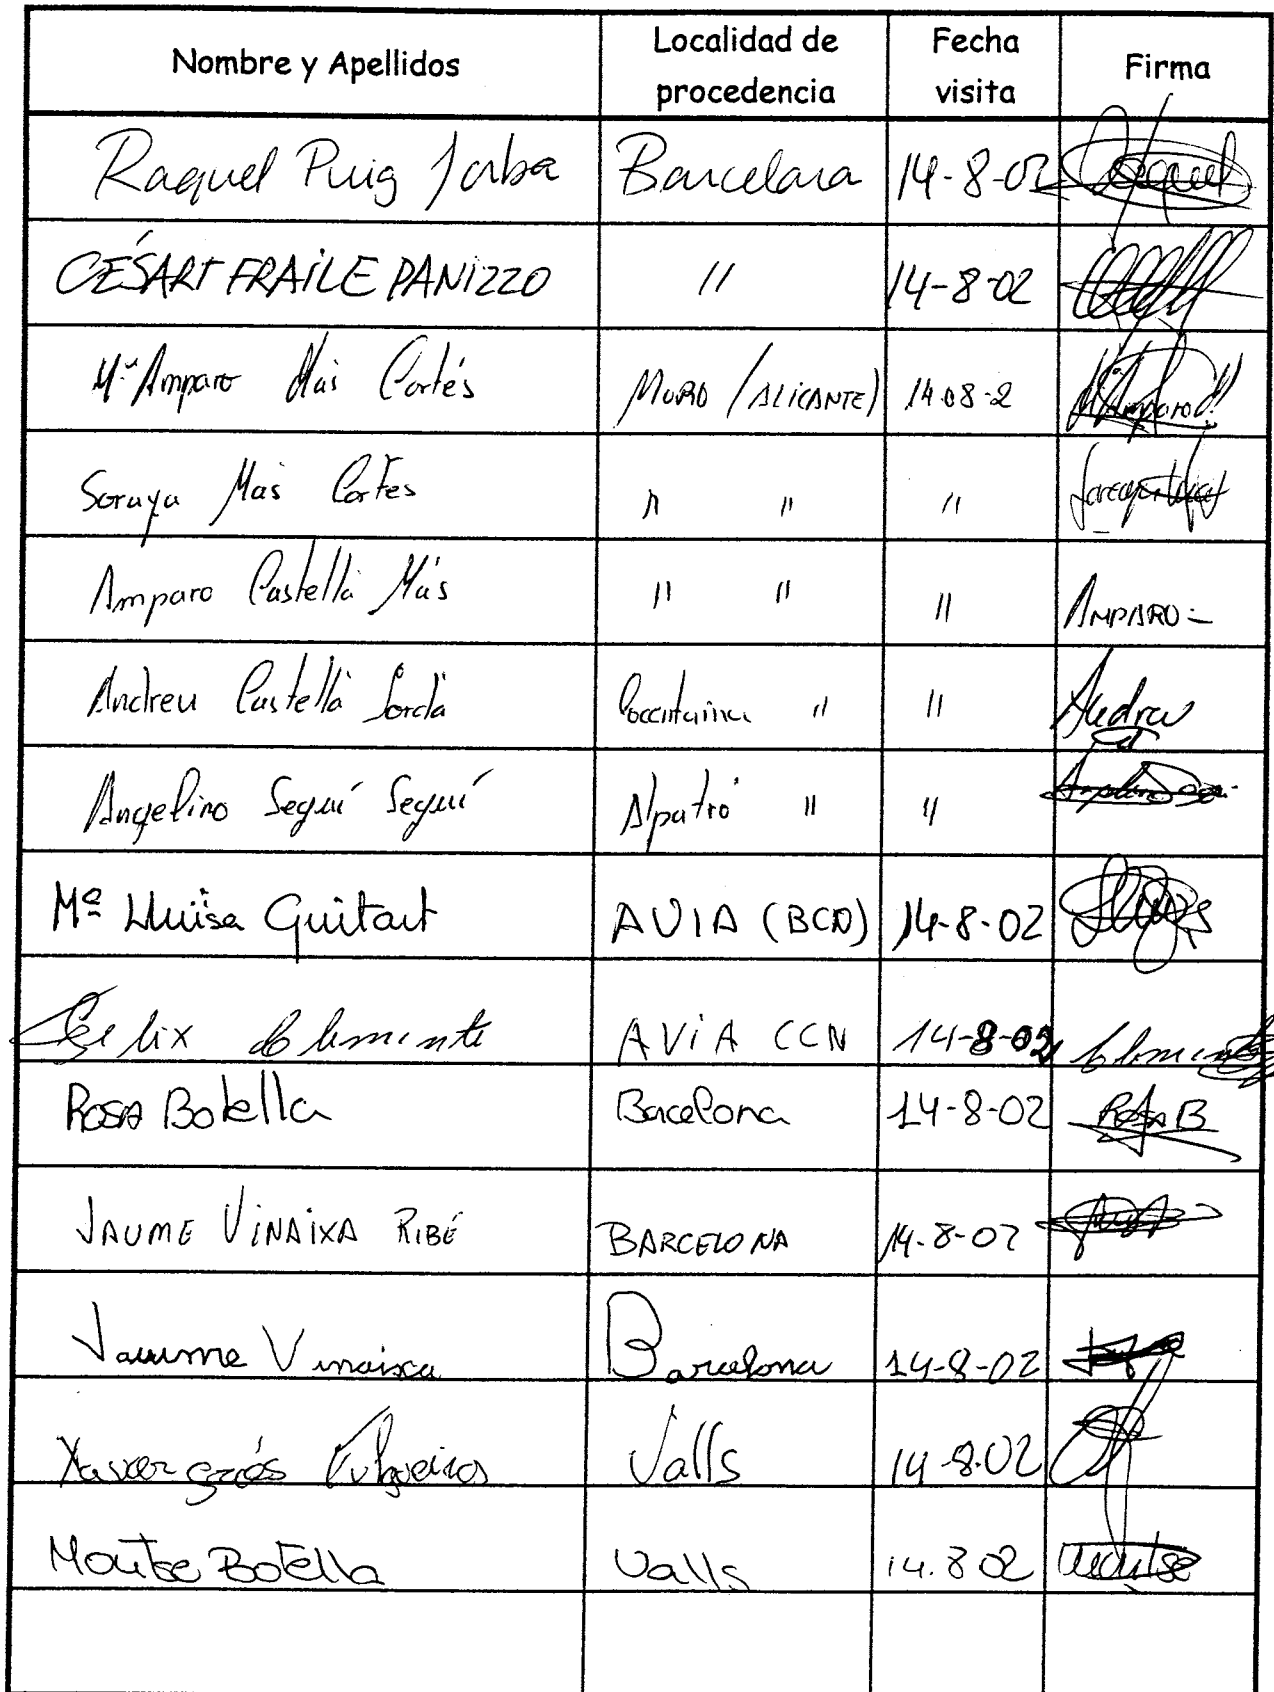 Nombre y Apellidos Localidad de procedencia Fecha visita Firma
Raquel Puig Jorba Barcelona 14-8-02 Raquel
CÉSAR FRAILE PANIZZO " 14-8-02
Mª Amparo Más Cortés MURO (ALICANTE) 14.08-2 Mª Amparo
Soraya Mas Cortes " " "
Amparo Castellà Más " " " AMPARO
Andreu Castellà Jordà Cocentaina " " Andreu
Angelino Seguí Seguí Alpatró " "
Mª Lluïsa Guitart AVIA (BCN) 14-8-02
Felix Clemente AVIA CCN 14-8-02 Clemente
ROSA Botella Barcelona 14-8-02 Rosa B
JAUME VINAIXA RIBÉ BARCELONA 14-8-02
Jaume Vinaixa Barcelona 14-8-02
Xavier Valls 14-8-02
Montse Botella Valls 14.8 02 Montse